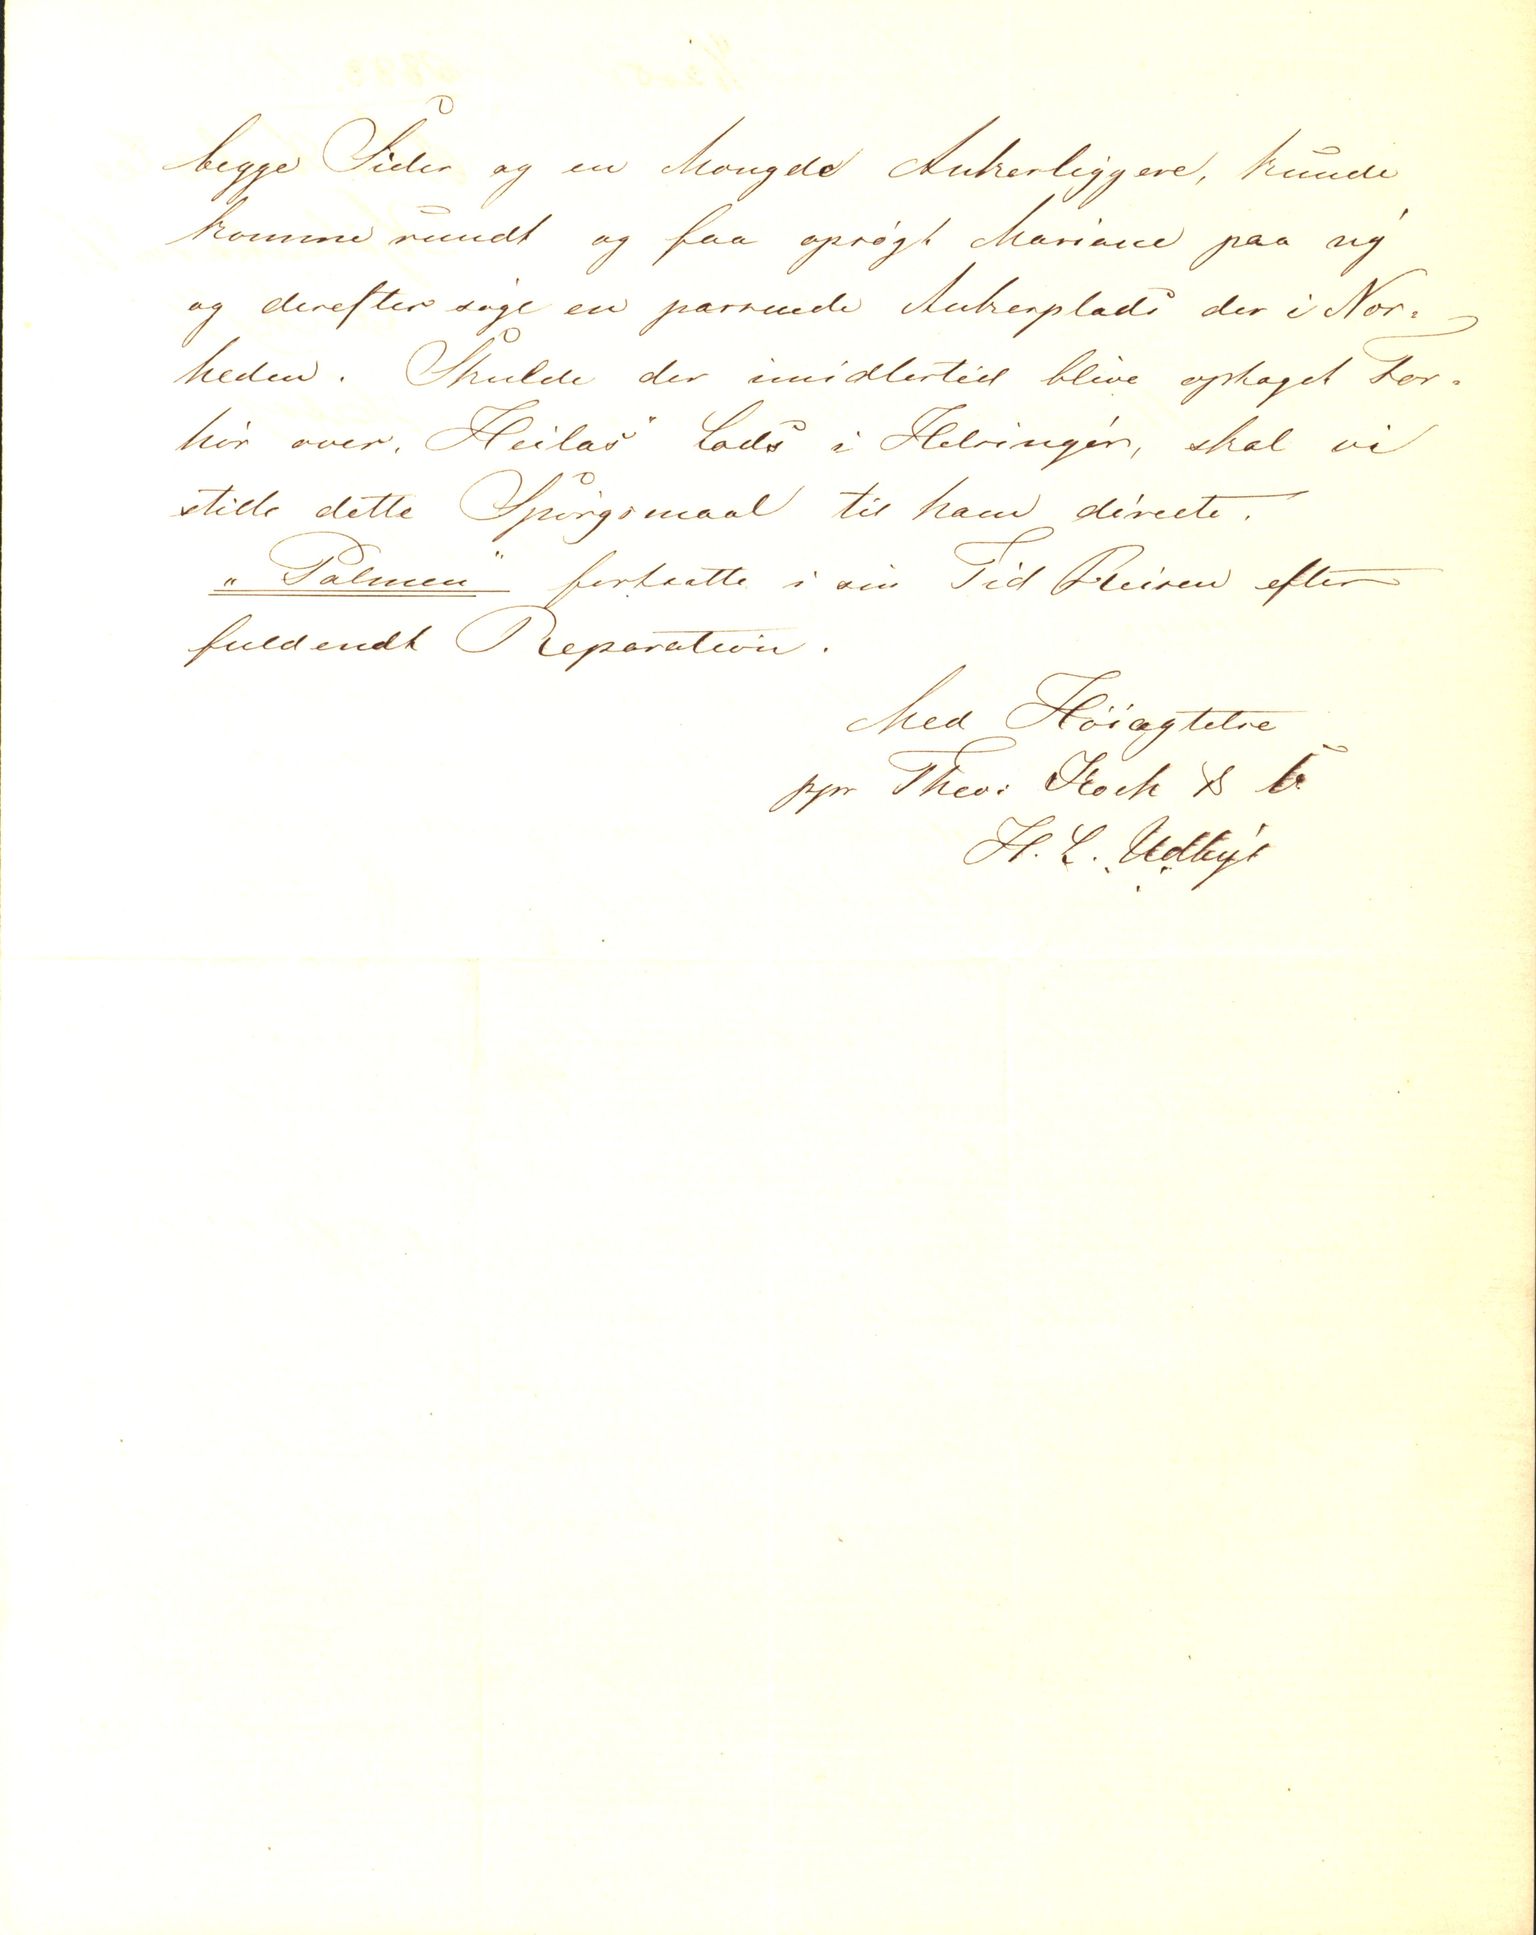 begge Sider og en Mængde Ankerliggere, kunde
komme rundt og faa opsøgt Mariane paa ny
og derefter søge en passende Ankerplads der i Nær-
heden. Skulde der imidlertid blive optaget For-
hör over „Heilas" Lods i Helsingör, skal vi
stille dette Spörgsmaal til ham directe.
„Palmen" fortsatte i sin Tid Reisen efter
fuldendt Reparation.
Med Höiagtelse
ppr Theo: Koch & Co
H. L.